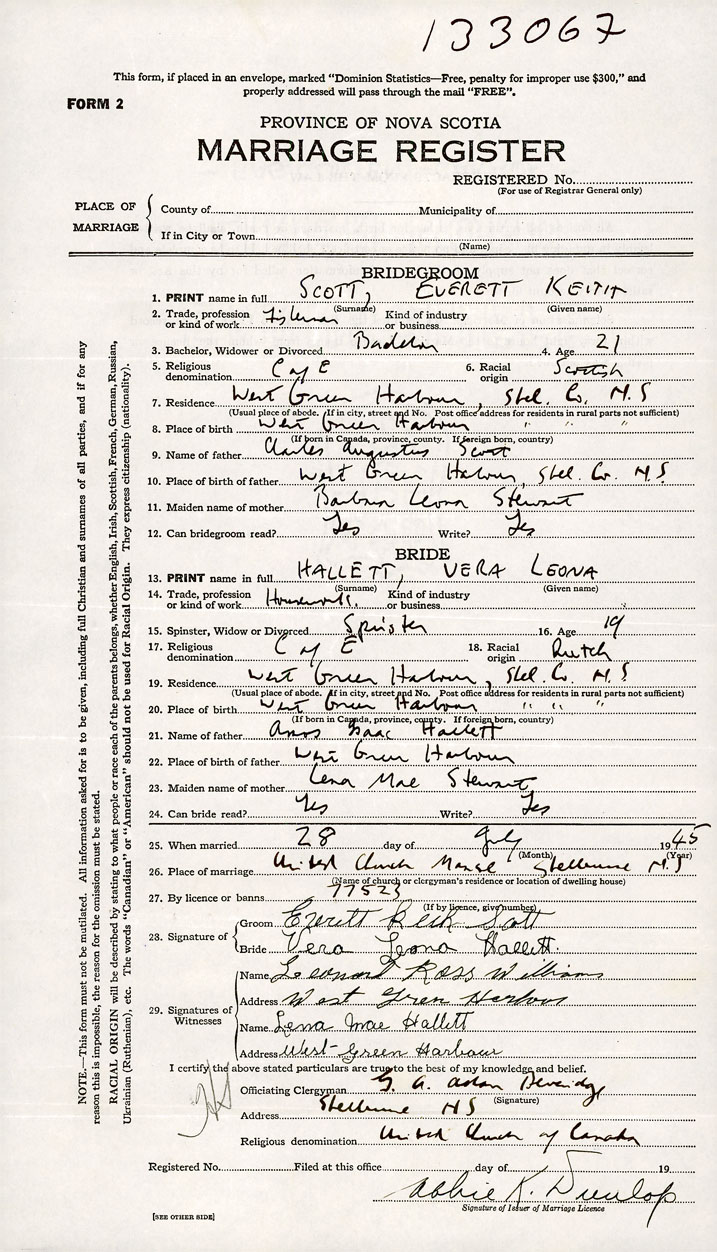 133067
This form, if placed in an envelope, marked "Dominion Statistics—Free, penalty for improper use $300," and
properly addressed will pass through the mail "FREE".
FORM 2
PROVINCE OF NOVA SCOTIA
MARRIAGE REGISTER
REGISTERED No.
(For use of Registrar General only)
PLACE OF MARRIAGE
County of Municipality of
If in City or Town
(Name)
BRIDEGROOM
1. PRINT name in full SCOTT, EVERETT KEITH
(Surname) (Given name)
2. Trade, profession or kind of work Fisherman Kind of industry or business
3. Bachelor, Widower or Divorced Bachelor 4. Age 21
5. Religious denomination C of E 6. Racial origin Scottish
7. Residence West Green Harbour, Shel. Co. N.S
(Usual place of abode. If in city, street and No. Post office address for residents in rural parts not sufficient)
8. Place of birth West Green Harbour " " "
(If born in Canada, province, county. If foreign born, country)
9. Name of father Charles Augustus Scott
10. Place of birth of father West Green Harbour, Shel. Co. N.S
11. Maiden name of mother Barbara Leona Stewart
12. Can bridegroom read? Yes Write? Yes
BRIDE
13. PRINT name in full HALLETT, VERA LEONA
(Surname) (Given name)
14. Trade, profession or kind of work Housework. Kind of industry or business
15. Spinster, Widow or Divorced Spinster 16. Age 19
17. Religious denomination C of E 18. Racial origin Dutch
19. Residence West Green Harbour, Shel. Co. N.S
(Usual place of abode. If in city, street and No. Post office address for residents in rural parts not sufficient)
20. Place of birth West Green Harbour " " "
(If born in Canada, province, county. If foreign born, country)
21. Name of father Amos Isaac Hallett
22. Place of birth of father West Green Harbour
23. Maiden name of mother Lena Mae Stewart
24. Can bride read? Yes Write? Yes
25. When married 28 day of July 1945
(Month) (Year)
26. Place of marriage United Church Manse Shelburne N.S
(Name of church or clergyman's residence or location of dwelling house)
27. By licence or banns 77523
(If by licence, give number)
28. Signature of
Groom Everett Keith Scott
Bride Vera Leona Hallett.
29. Signatures of Witnesses
Name Leonard Ross Williams
Address West Green Harbour
Name Lena Mae Hallett
Address West Green Harbour
I certify the above stated particulars are true to the best of my knowledge and belief.
Officiating Clergyman G. A. Beveridge
(Signature)
Address Shelburne NS
Religious denomination United Church of Canada
Registered No. Filed at this office day of 19
Abbie K. Dunlop
Signature of Issuer of Marriage Licence
[SEE OTHER SIDE]
NOTE.—This form must not be mutilated. All information asked for is to be given, including full Christian and surnames of all parties, and if for any
reason this is impossible, the reason for the omission must be stated.
RACIAL ORIGIN will be described by stating to what people or race each of the parents belongs, whether English, Irish, Scottish, French, German, Russian,
Ukrainian (Ruthenian), etc. The words "Canadian" or "American" should not be used for Racial Origin. They express citizenship (nationality).